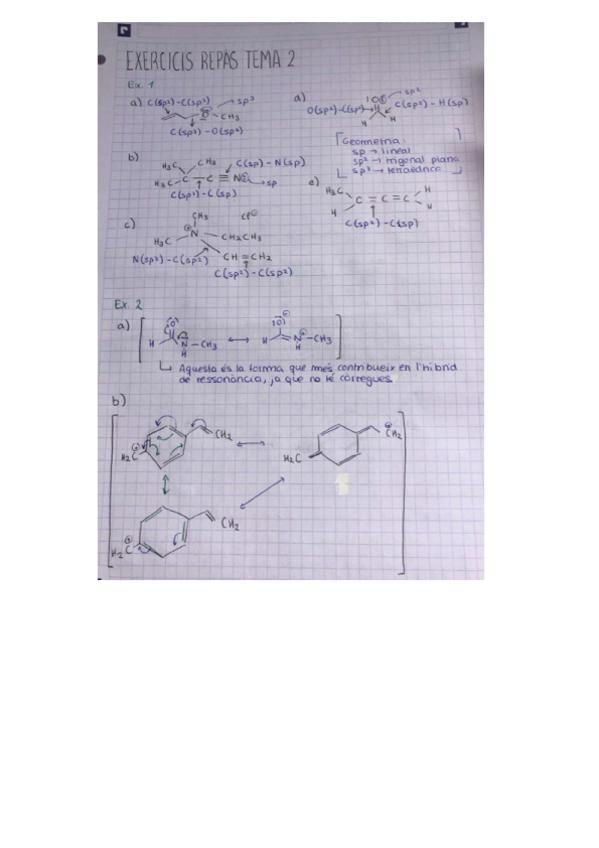 EXERCICIS REPÀS TEMA 2
Ex. 1
a) C(sp²)-C(sp³)
sp³
O - CH₃
C(sp³) - O(sp³)
b)
H₃C
CH₃
C(sp) - N(sp)
H₃C - C - C ≡ N
sp
C(sp³) - C(sp)
c)
CH₃
Cl⊖
⊕
N - CH₂CH₃
H₃C
N(sp³) - C(sp²)
CH = CH₂
C(sp²) - C(sp²)
d)
sp²
O(sp²)-C(sp²)
C(sp²) - H
H
H
Geometria
sp → lineal
sp² → trigonal plana
sp³ → tetraèdrica
e)
H₃C
H
C = C = C
H
H
C(sp²) - C(sp)
Ex. 2
a)
H
N - CH₃
H
H
N - CH₃
H
Aquesta és la forma que més contribueix en l'híbrid
de ressonància, ja que no té càrregues.
b)
H₂C
⊕
CH₂
H₂C
⊕
CH₂
H₂C
⊕
CH₂